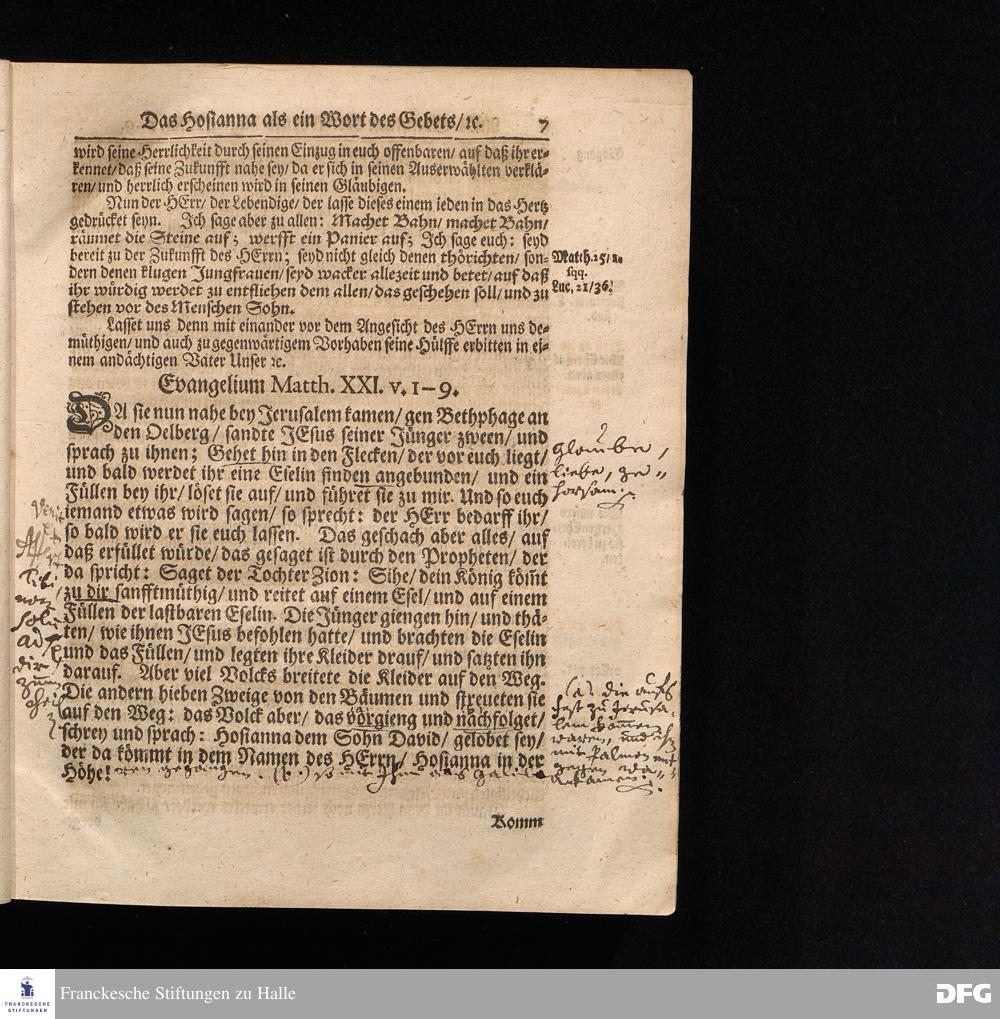 Das Hosianna als ein Wort des Gebets/ ꝛc. 7
wird seine Herrlichkeit durch seinen Einzug in euch offenbaren/ auf daß ihr er-
kennet/ daß seine Zukunfft nahe sey/ da er sich in seinen Auserwählten verklä-
ren/ und herrlich erscheinen wird in seinen Gläubigen.
Nun der HErr/ der Lebendige/ der lasse dieses einem ieden in das Hertz
gedrücket seyn. Ich sage aber zu allen: Machet Bahn/ machet Bahn/
räumet die Steine auf; werfft ein Panier auf; Ich sage euch: seyd
bereit zu der Zukunfft des HErrn; seyd nicht gleich denen thörichten/ son-
dern denen klugen Jungfrauen/ seyd wacker allezeit und betet/ auf daß
ihr würdig werdet zu entfliehen dem allen/ das geschehen soll/ und zu
stehen vor des Menschen Sohn.
Matth. 25/
sqq.
Luc. 21/36.
Lasset uns denn mit einander vor dem Angesicht des HErrn uns de-
müthigen/ und auch zu gegenwärtigem Vorhaben seine Hülffe erbitten in ei-
nem andächtigen Vater Unser ꝛc.
Evangelium Matth. XXI. v. 1-9.
DA sie nun nahe bey Jerusalem kamen/ gen Bethphage an
den Oelberg/ sandte JEsus seiner Jünger zween/ und
sprach zu ihnen; Gehet hin in den Flecken/ der vor euch liegt/
und bald werdet ihr eine Eselin finden angebunden/ und ein
Füllen bey ihr/ löset sie auf/ und führet sie zu mir. Und so euch
iemand etwas wird sagen/ so sprecht: der HErr bedarff ihr/
so bald wird er sie euch lassen. Das geschach aber alles/ auf
daß erfüllet würde/ das gesaget ist durch den Propheten/ der
da spricht: Saget der Tochter Zion: Sihe/ dein König kömt
zu dir sanfftmüthig/ und reitet auf einem Esel/ und auf einem
Füllen der lastbaren Eselin. Die Jünger giengen hin/ und thä-
ten/ wie ihnen JEsus befohlen hatte/ und brachten die Eselin
und das Füllen/ und legten ihre Kleider drauf/ und satzten ihn
darauf. Aber viel Volcks breitete die Kleider auf den Weg.
Die andern hieben Zweige von den Bäumen und streueten sie
auf den Weg: das Volck aber/ das vorgieng und nachfolget/
schrey und sprach: Hosianna dem Sohn David/ gelobet sey/
der da kömmt in dem Namen des HErrn/ Hosianna in der
Höhe!
glaube,
liebe, ge-
horsam
Tibi
non
soli
ad
dir
zum
(a). die aufs
fest zu Jerusa-
lem kommen
waren, und
mit Palmen
entgegen
gegangen.
Komm
FRANCKESCHE
STIFTUNGEN
Franckesche Stiftungen zu Halle
DFG